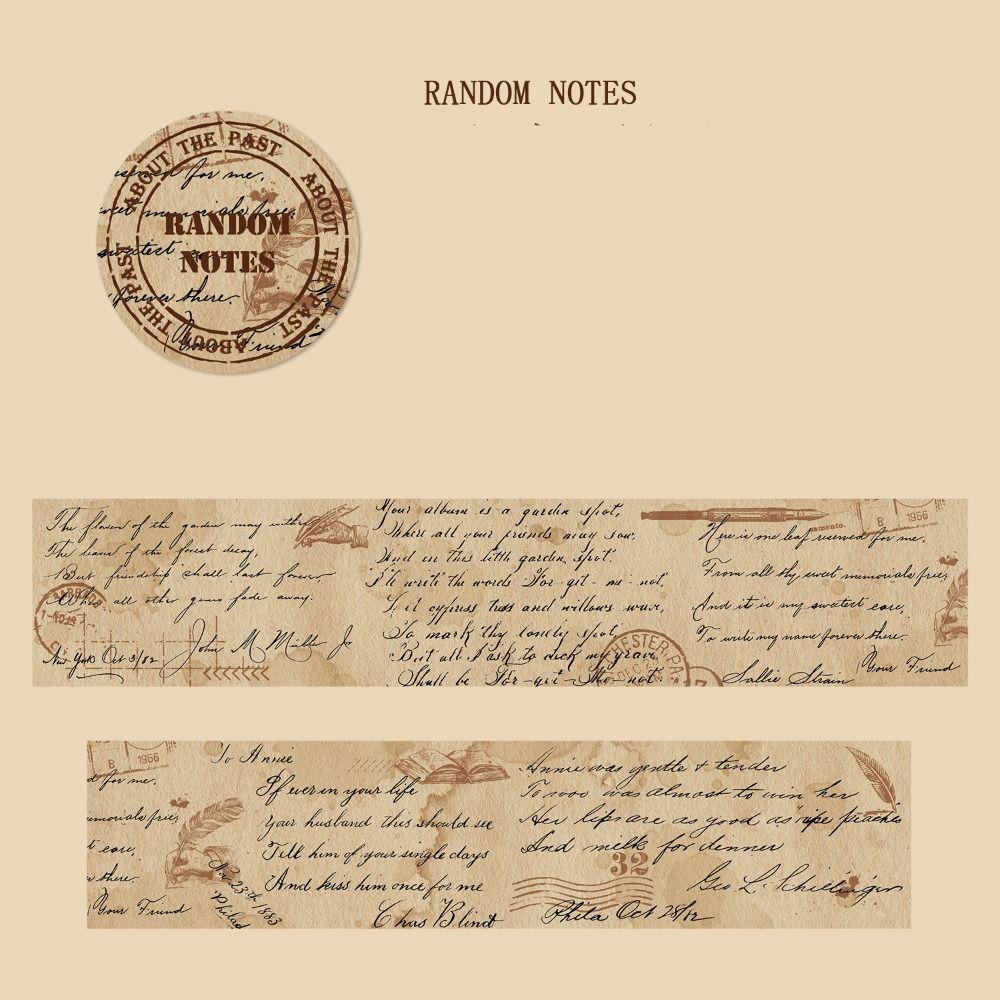 RANDOM NOTES
ABOUT THE PAST
ABOUT THE PAST
ABOUT THE PAST
for me,
RANDOM
NOTES
forever there.
Your Friend
The flowers of the garden may wither
The leaves of the forest decay,
But friendship shall last forever
all other gems fade away.
John M Miller Jr
New York Oct 3/82
Your album is a garden spot,
Where all your friends may sow,
And in this little garden spot
I'll write the words For-get-me-not,
Let cypress trees and willows wave,
To mark thy lonely spot,
But all I ask to deck my grave
Shall be For-get-Me-not
CHESTER, PA
B 1966
Here is one leaf reserved for me,
From all thy sweet memorials free;
And it is my sweetest care,
To write my name forever there.
Your Friend
Sallie Strain
B 1966
for me,
memorials free;
care,
there.
Your Friend
Nov 23th 1883
Philad
To Annie
If ever in your life
Your husband this should see
Tell him of your single days
And kiss him once for me
Chas Blind
Annie was gentle & tender
To woo was almost to win her
Her lips are as good as ripe peaches
And milk for dinner
32
Geo L. Schillinger
Phila Oct 28/82